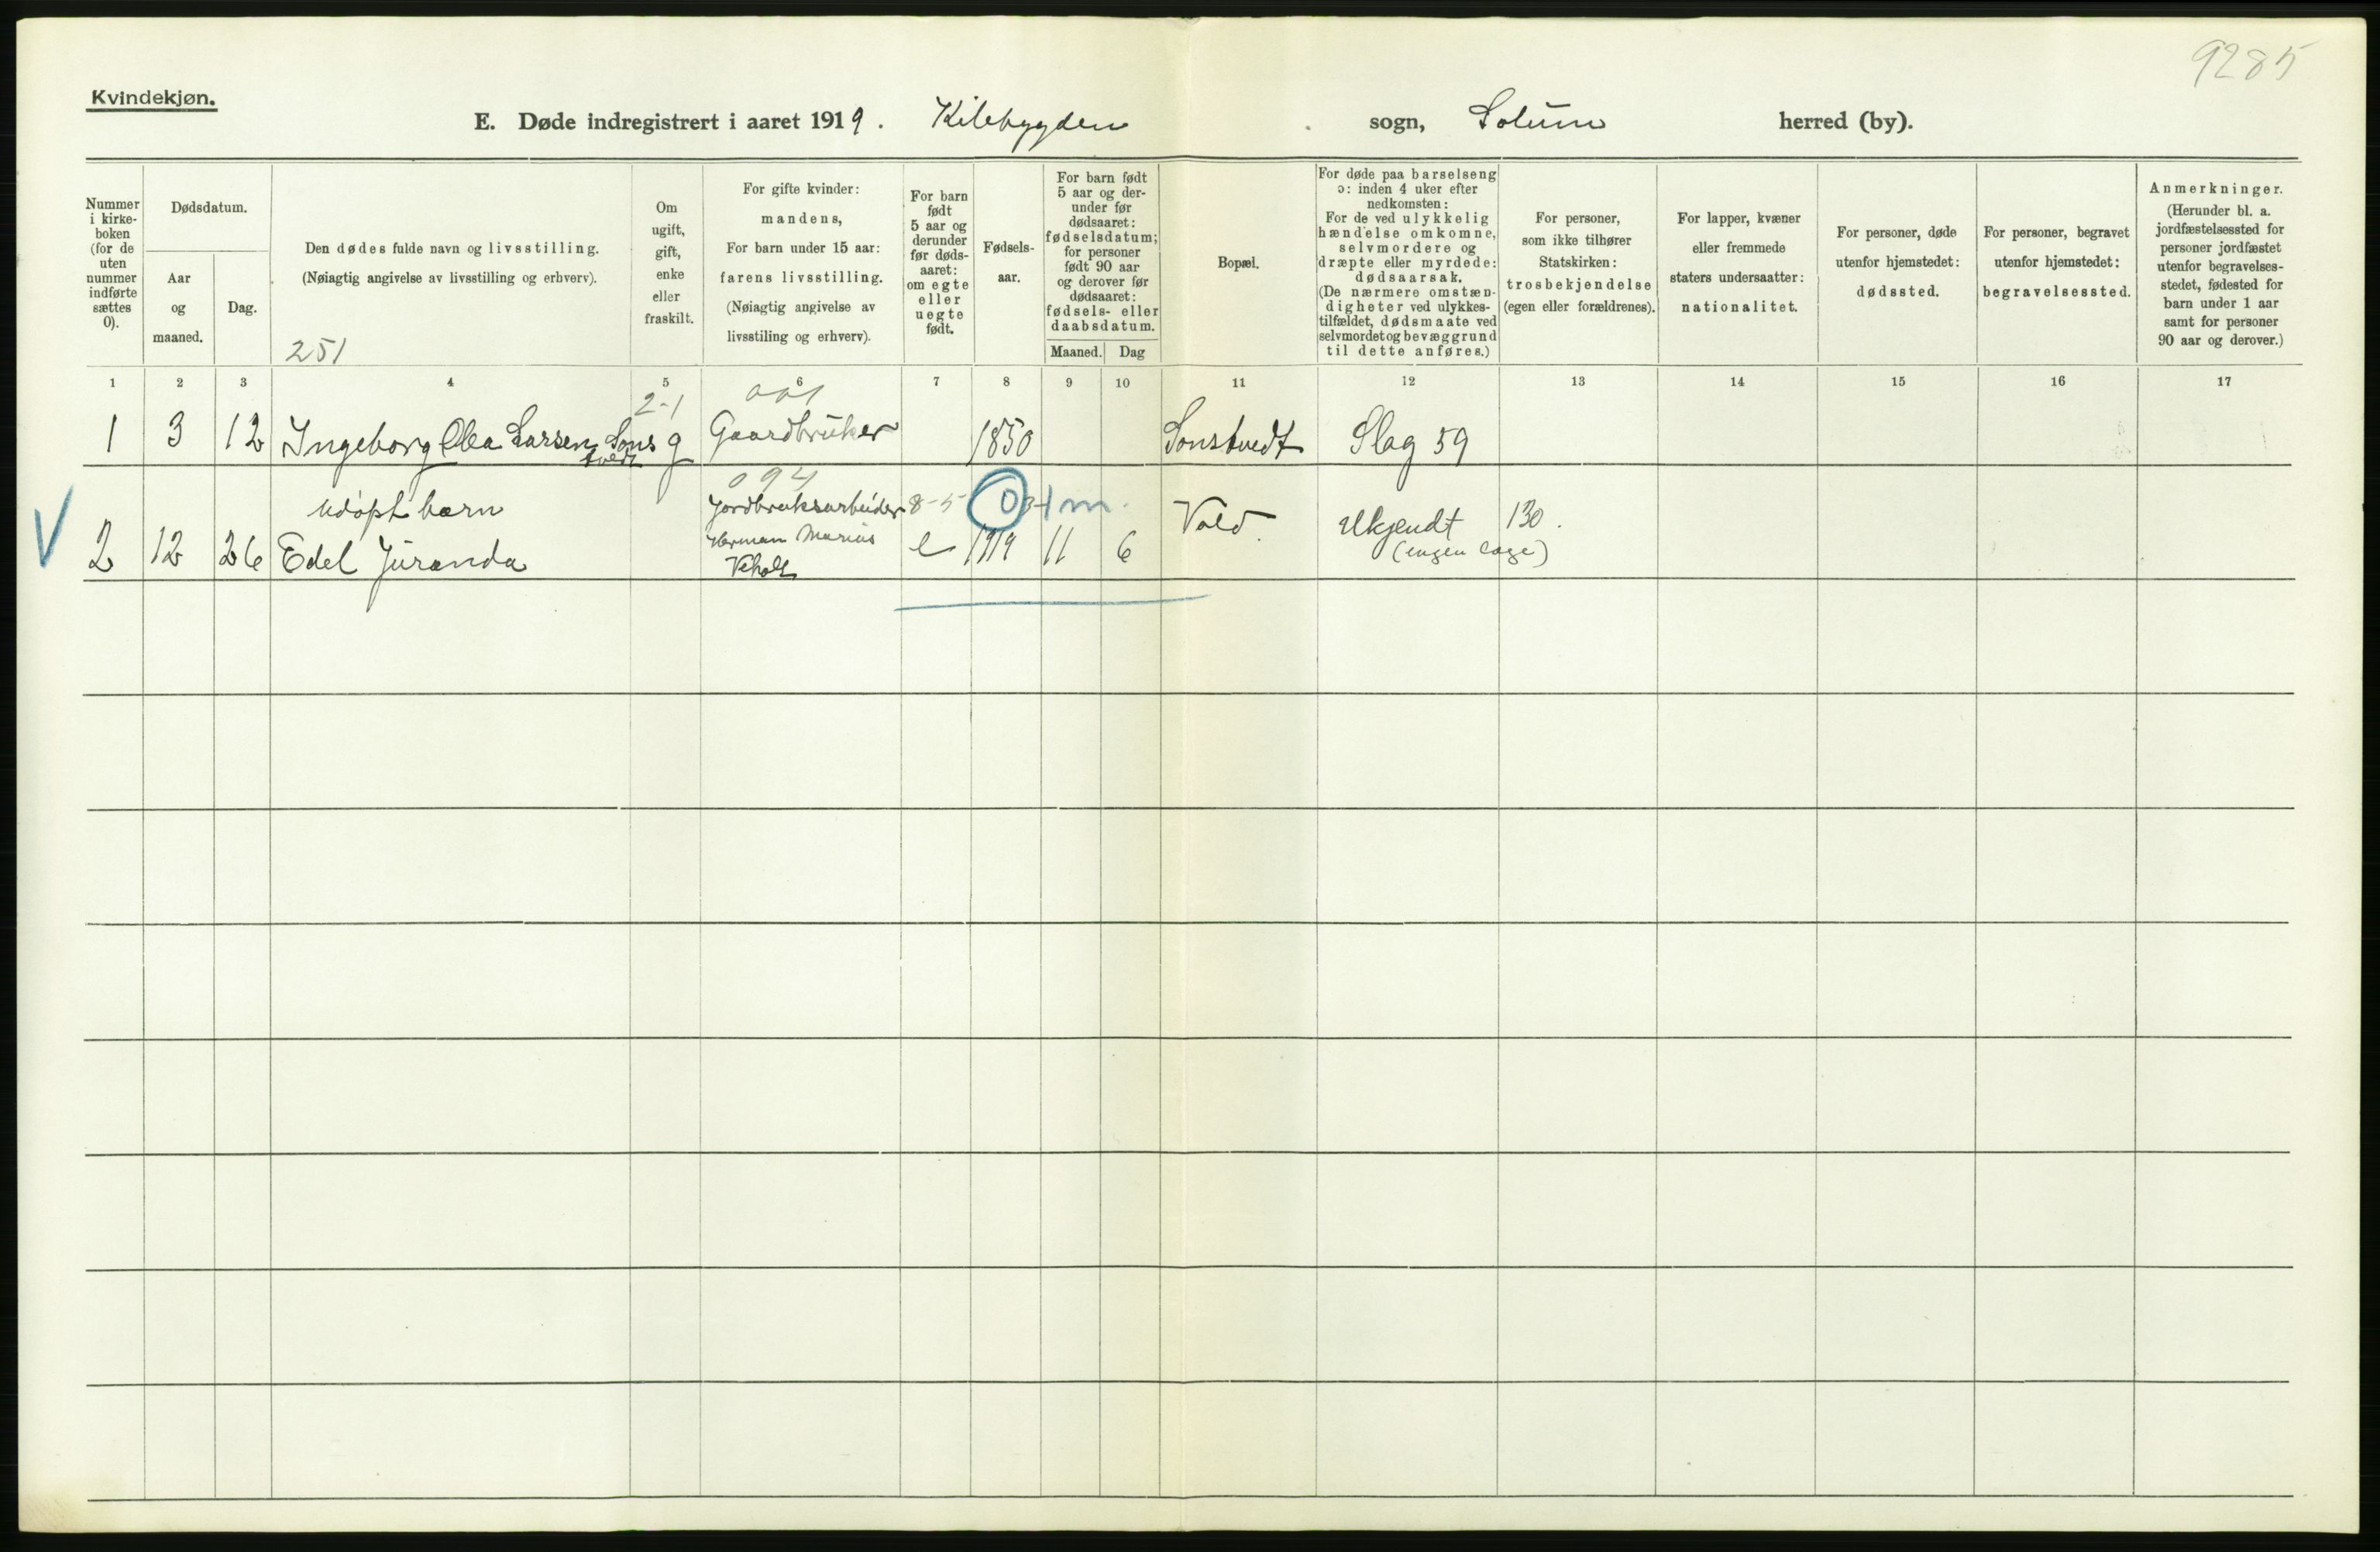 9285
Kvindekjøn.
E. Døde indregistrert i aaret 1919. Kilebygden sogn, Solum herred (by).
Nummer
i kirke-
boken
(for de
uten
nummer
indførte
sættes
0).
Dødsdatum.
Aar
og
maaned.
Dag.
Den dødes fulde navn og livsstilling.
(Nøiagtig angivelse av livsstilling og erhverv).
251
Om
ugift,
gift,
enke
eller
fraskilt.
For gifte kvinder:
mandens,
For barn under 15 aar:
farens livsstilling.
(Nøiagtig angivelse av
livsstiling og erhverv).
For barn
født
5 aar og
derunder
før døds-
aaret:
om egte
eller
uegte
født.
Fødsels-
aar.
For barn født
5 aar og der-
under før
dødsaaret:
fødselsdatum;
for personer
født 90 aar
og derover før
dødsaaret:
fødsels- eller
daabsdatum.
Maaned. Dag
Bopæl.
For døde paa barselseng
ɔ: inden 4 uker efter
nedkomsten:
For de ved ulykkelig
hændelse omkomne,
selvmordere og
dræpte eller myrdede:
dødsaarsak.
(De nærmere omstæn-
digheter ved ulykkes-
tilfældet, dødsmaate ved
selvmordet og bevæggrund
til dette anføres.)
For personer,
som ikke tilhører
Statskirken:
trosbekjendelse
(egen eller forældrenes).
For lapper, kvæner
eller fremmede
staters undersaatter:
nationalitet.
For personer, døde
utenfor hjemstedet:
dødssted.
For personer, begravet
utenfor hjemstedet:
begravelsessted.
Anmerkninger.
(Herunder bl. a.
jordfæstelsessted for
personer jordfæstet
utenfor begravelses-
stedet, fødested for
barn under 1 aar
samt for personer
90 aar og derover.)
1 2 3 4 5 6 7 8 9 10 11 12 13 14 15 16 17
2-1
1 3 12 Ingeborg Olea Larsen Sons g Gaardbruker 1850 Sonstvedt Slag 59
tvedt
094
udøpt barn Jordbruksarbeider 8-5 0 1m. Vold. Ukjendt 130.
2 12 26 Edel Juranda Herman Marius e 1919 11 6 (ingen læge)